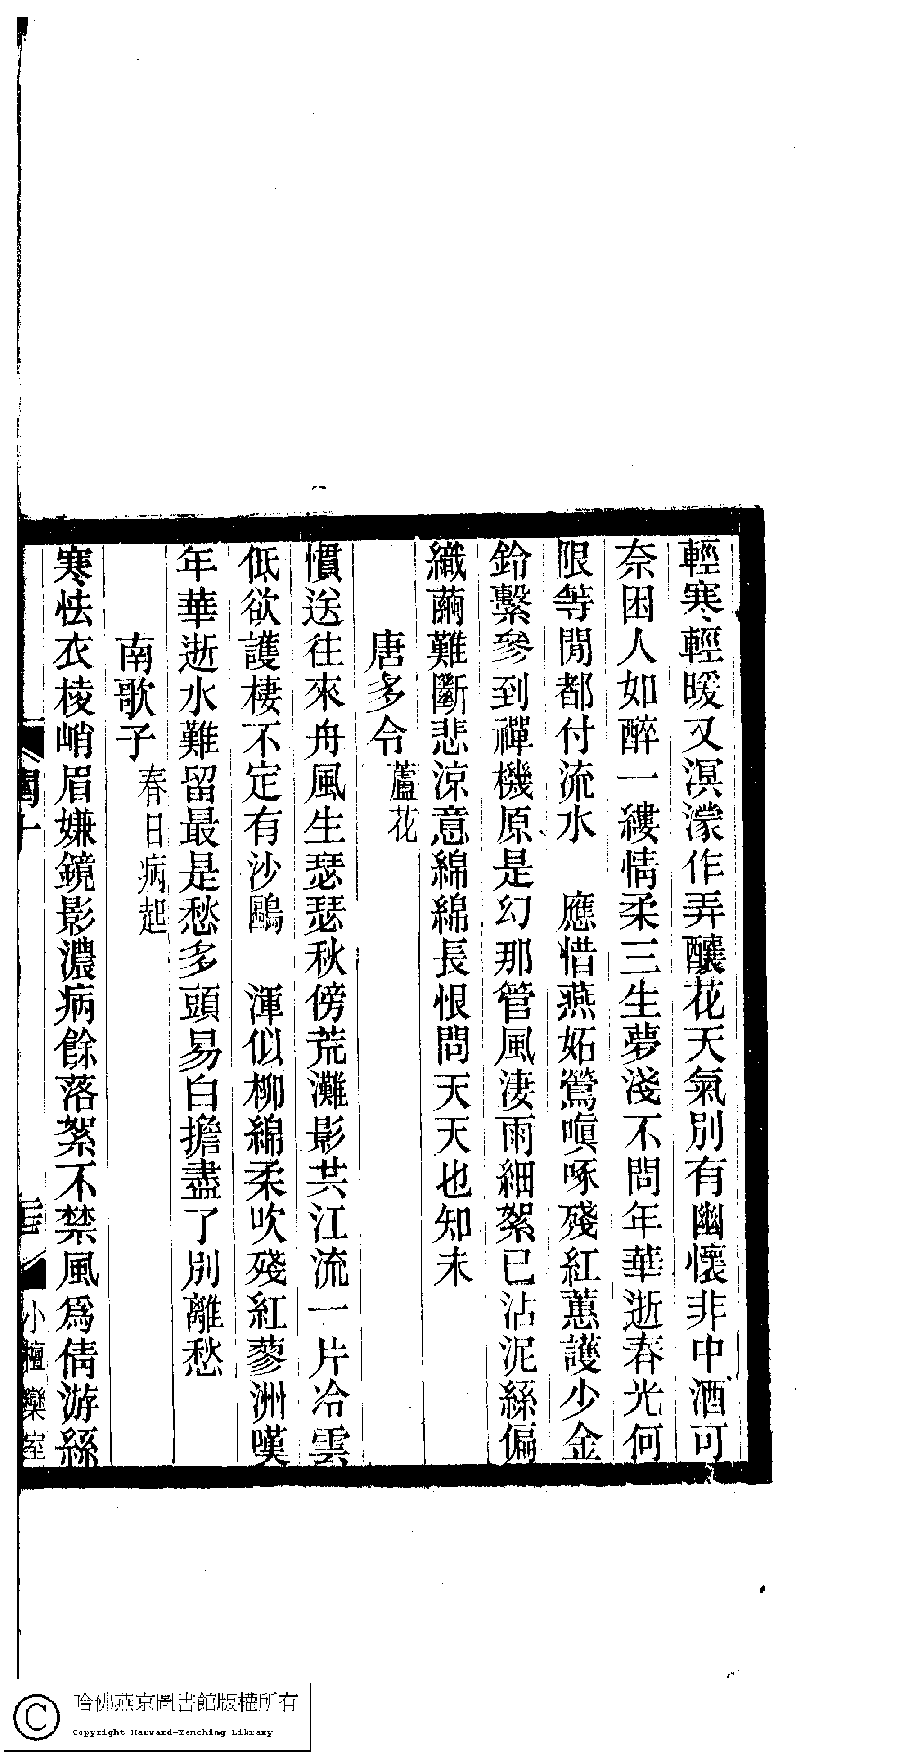 輕寒輕暖又溟濛作弄釀花天氣別有幽懷非中酒可
奈困人如醉一縷情柔三生夢淺不問年華逝春光何
限等閒都付流水　應惜燕妬鶯嗔啄殘紅蕙護少金
鈴繫參到禪機原是幻那管風淒雨細絮已沾泥絲偏
織繭難斷悲涼意綿綿長恨問天天也知未
唐多令 蘆花
慣送往來舟風生瑟瑟秋傍荒灘影共江流一片冷雲
低欲護棲不定有沙鷗　渾似柳綿柔吹殘紅蓼洲嘆
年華逝水難留最是愁多頭易白擔盡了別離愁
南歌子 春日病起
寒怯衣棱峭眉嫌鏡影濃病餘落絮不禁風爲倩游絲
小檀欒室
哈佛燕京圖書館版權所有
Copyright Harvard-Yenching Library